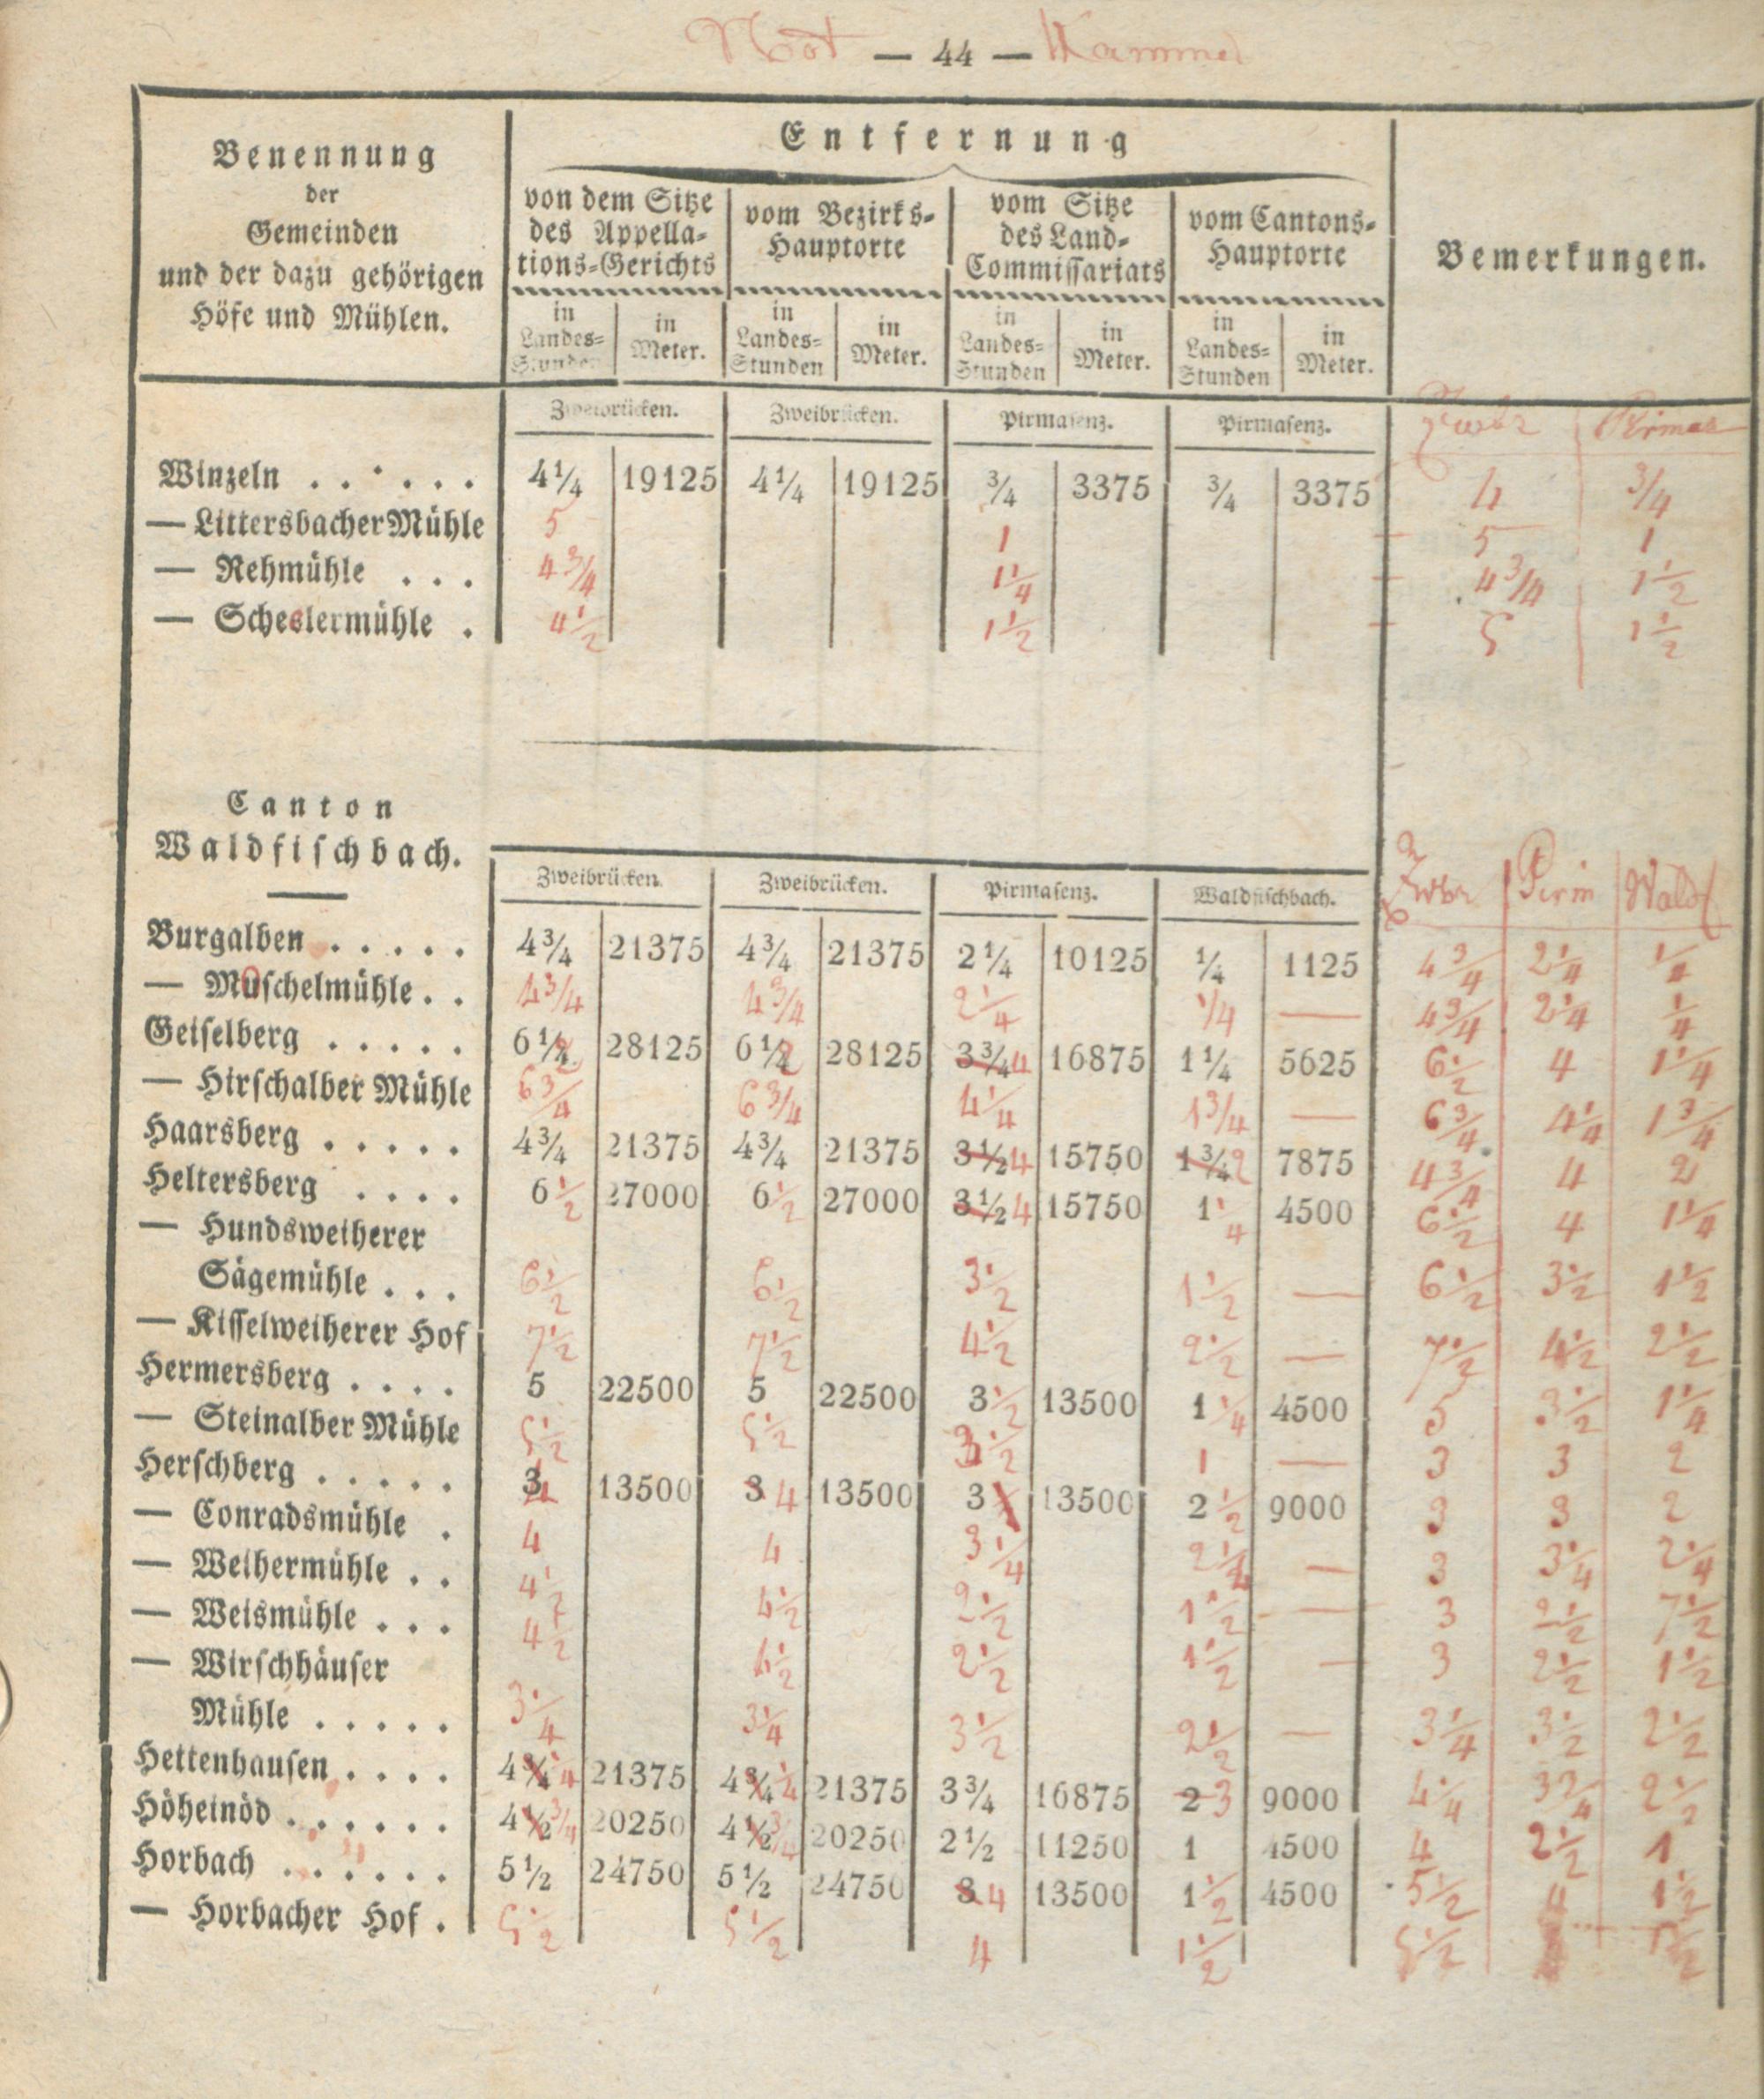 Not — 44 — Kammer
Benennung
der
Gemeinden
und der dazu gehörigen
Höfe und Mühlen.
Entfernung
von dem Sitze
des Appella-
tions-Gerichts
vom Bezirks-
Hauptorte
vom Sitze
des Land-
Commissariats
vom Cantons-
Hauptorte
Bemerkungen.
in
Landes-
Stunden
in
Meter.
in
Landes-
Stunden
in
Meter.
in
Landes-
Stunden
in
Meter.
in
Landes-
Stunden
in
Meter.
Zweibrücken. Zweibrücken. Pirmasenz. Pirmasenz. Pirmas
Winzeln . . . . . . 4¼ 19125 4¼ 19125 ¾ 3375 ¾ 3375 4 ¾
— Littersbacher Mühle 5 1 5 1
— Rehmühle . . . 4¾ 1¼ 4¾ 1½
— Scheslermühle . 4½ 1½ 5 1½
Canton
Waldfischbach.
Zweibrücken. Zweibrücken. Pirmasenz. Waldfischbach. Zwbr Pirm Waldf
Burgalben . . . . . 4¾ 21375 4¾ 21375 2¼ 10125 ¼ 1125 4¾ 2¼ ¼
— Muschelmühle . . 4¾ 4¾ 2¼ ¼ — 4¾ 2¼ ¼
Geiselberg . . . . . 6½ 28125 6½ 28125 3¾ 4 16875 1¼ 5625 6½ 4 1¼
— Hirschalber Mühle 6¾ 6¾ 4¼ 1¾ — 6¾ 4¼ 1¾
Haarsberg . . . . . 4¾ 21375 4¾ 21375 3½ 4 15750 1¾ 2 7875 4¾ 4 2
Heltersberg . . . . 6½ 27000 6½ 27000 3½ 4 15750 1¼ 4500 6½ 4 1¼
— Hundsweiherer
Sägemühle . . . 6½ 6½ 3½ 1½ — 6½ 3½ 1½
— Kisselweiherer Hof 7½ 7½ 4½ 2½ — 7½ 4½ 2½
Hermersberg . . . . 5 22500 5 22500 3½ 13500 1¼ 4500 5 3½ 1¼
— Steinalber Mühle 5½ 5½ 3½ 1 — 3 3 2
Herschberg . . . . . 3 4 13500 3 4 13500 3 13500 2½ 9000 3 3 2
— Conradsmühle . 4 4 3¼ 2¼ — 3 3¼ 2¼
— Weihermühle . . 4½ 4½ 2½ 1½ — 3 2½ 7½
— Weismühle . . . 4½ 4½ 2½ 1½ — 3 2½ 1½
— Wirschhäuser
Mühle . . . . . 3¼ 3¼ 3½ 2½ — 3¼ 3½ 2½
Hettenhausen . . . . 4¾ ¼ 21375 4¾ ¼ 21375 3¾ 16875 2 3 9000 4¼ 3¾ 2½
Höheinöd . . . . . . 4½ ¾ 20250 4½ ¾ 20250 2½ 11250 1 4500 4 2½ 1
Horbach . . . . . . 5½ 24750 5½ 24750 3 4 13500 1½ 4500 5½ 4 1½
— Horbacher Hof . 5½ 5½ 4 1½ 5½ 1½